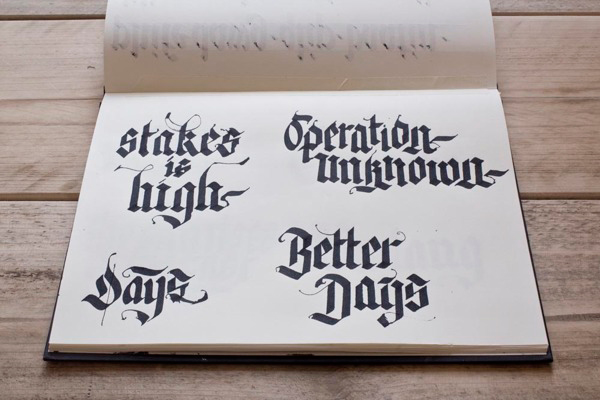 stakes
is
high
Operation
unknown
Days
Better
Days